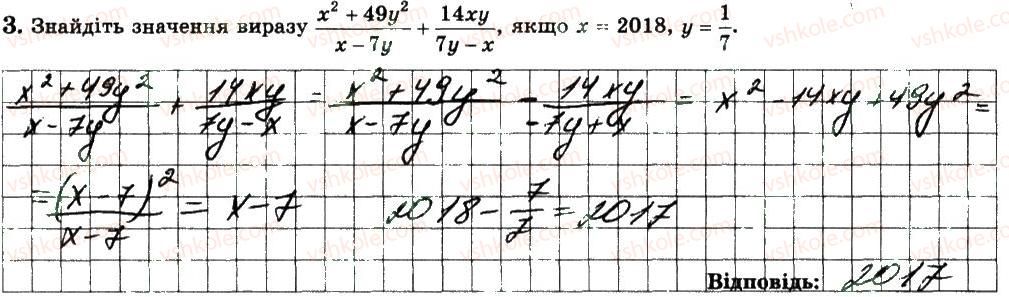 3. Знайдіть значення виразу (x² + 49y²)/(x − 7y) + 14xy/(7y − x), якщо x = 2018, y = 1/7.
(x² + 49y²)/(x − 7y) + 14xy/(7y − x) = (x² + 49y²)/(x − 7y) − 14xy/(−7y + x) = x² − 14xy + 49y² =
= (x − 7)²/(x − 7) = x − 7 2018 − 7/7 = 2017
Відповідь: 2017